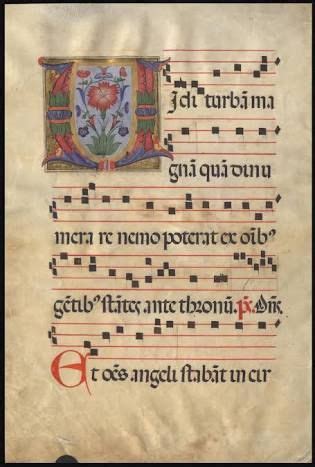 VIdi turbā ma
gnā quā dinu
mera re nemo poterat ex oībꝰ
gētibꝰ stātes ante thronū.
Et oēs angeli stabāt in cir